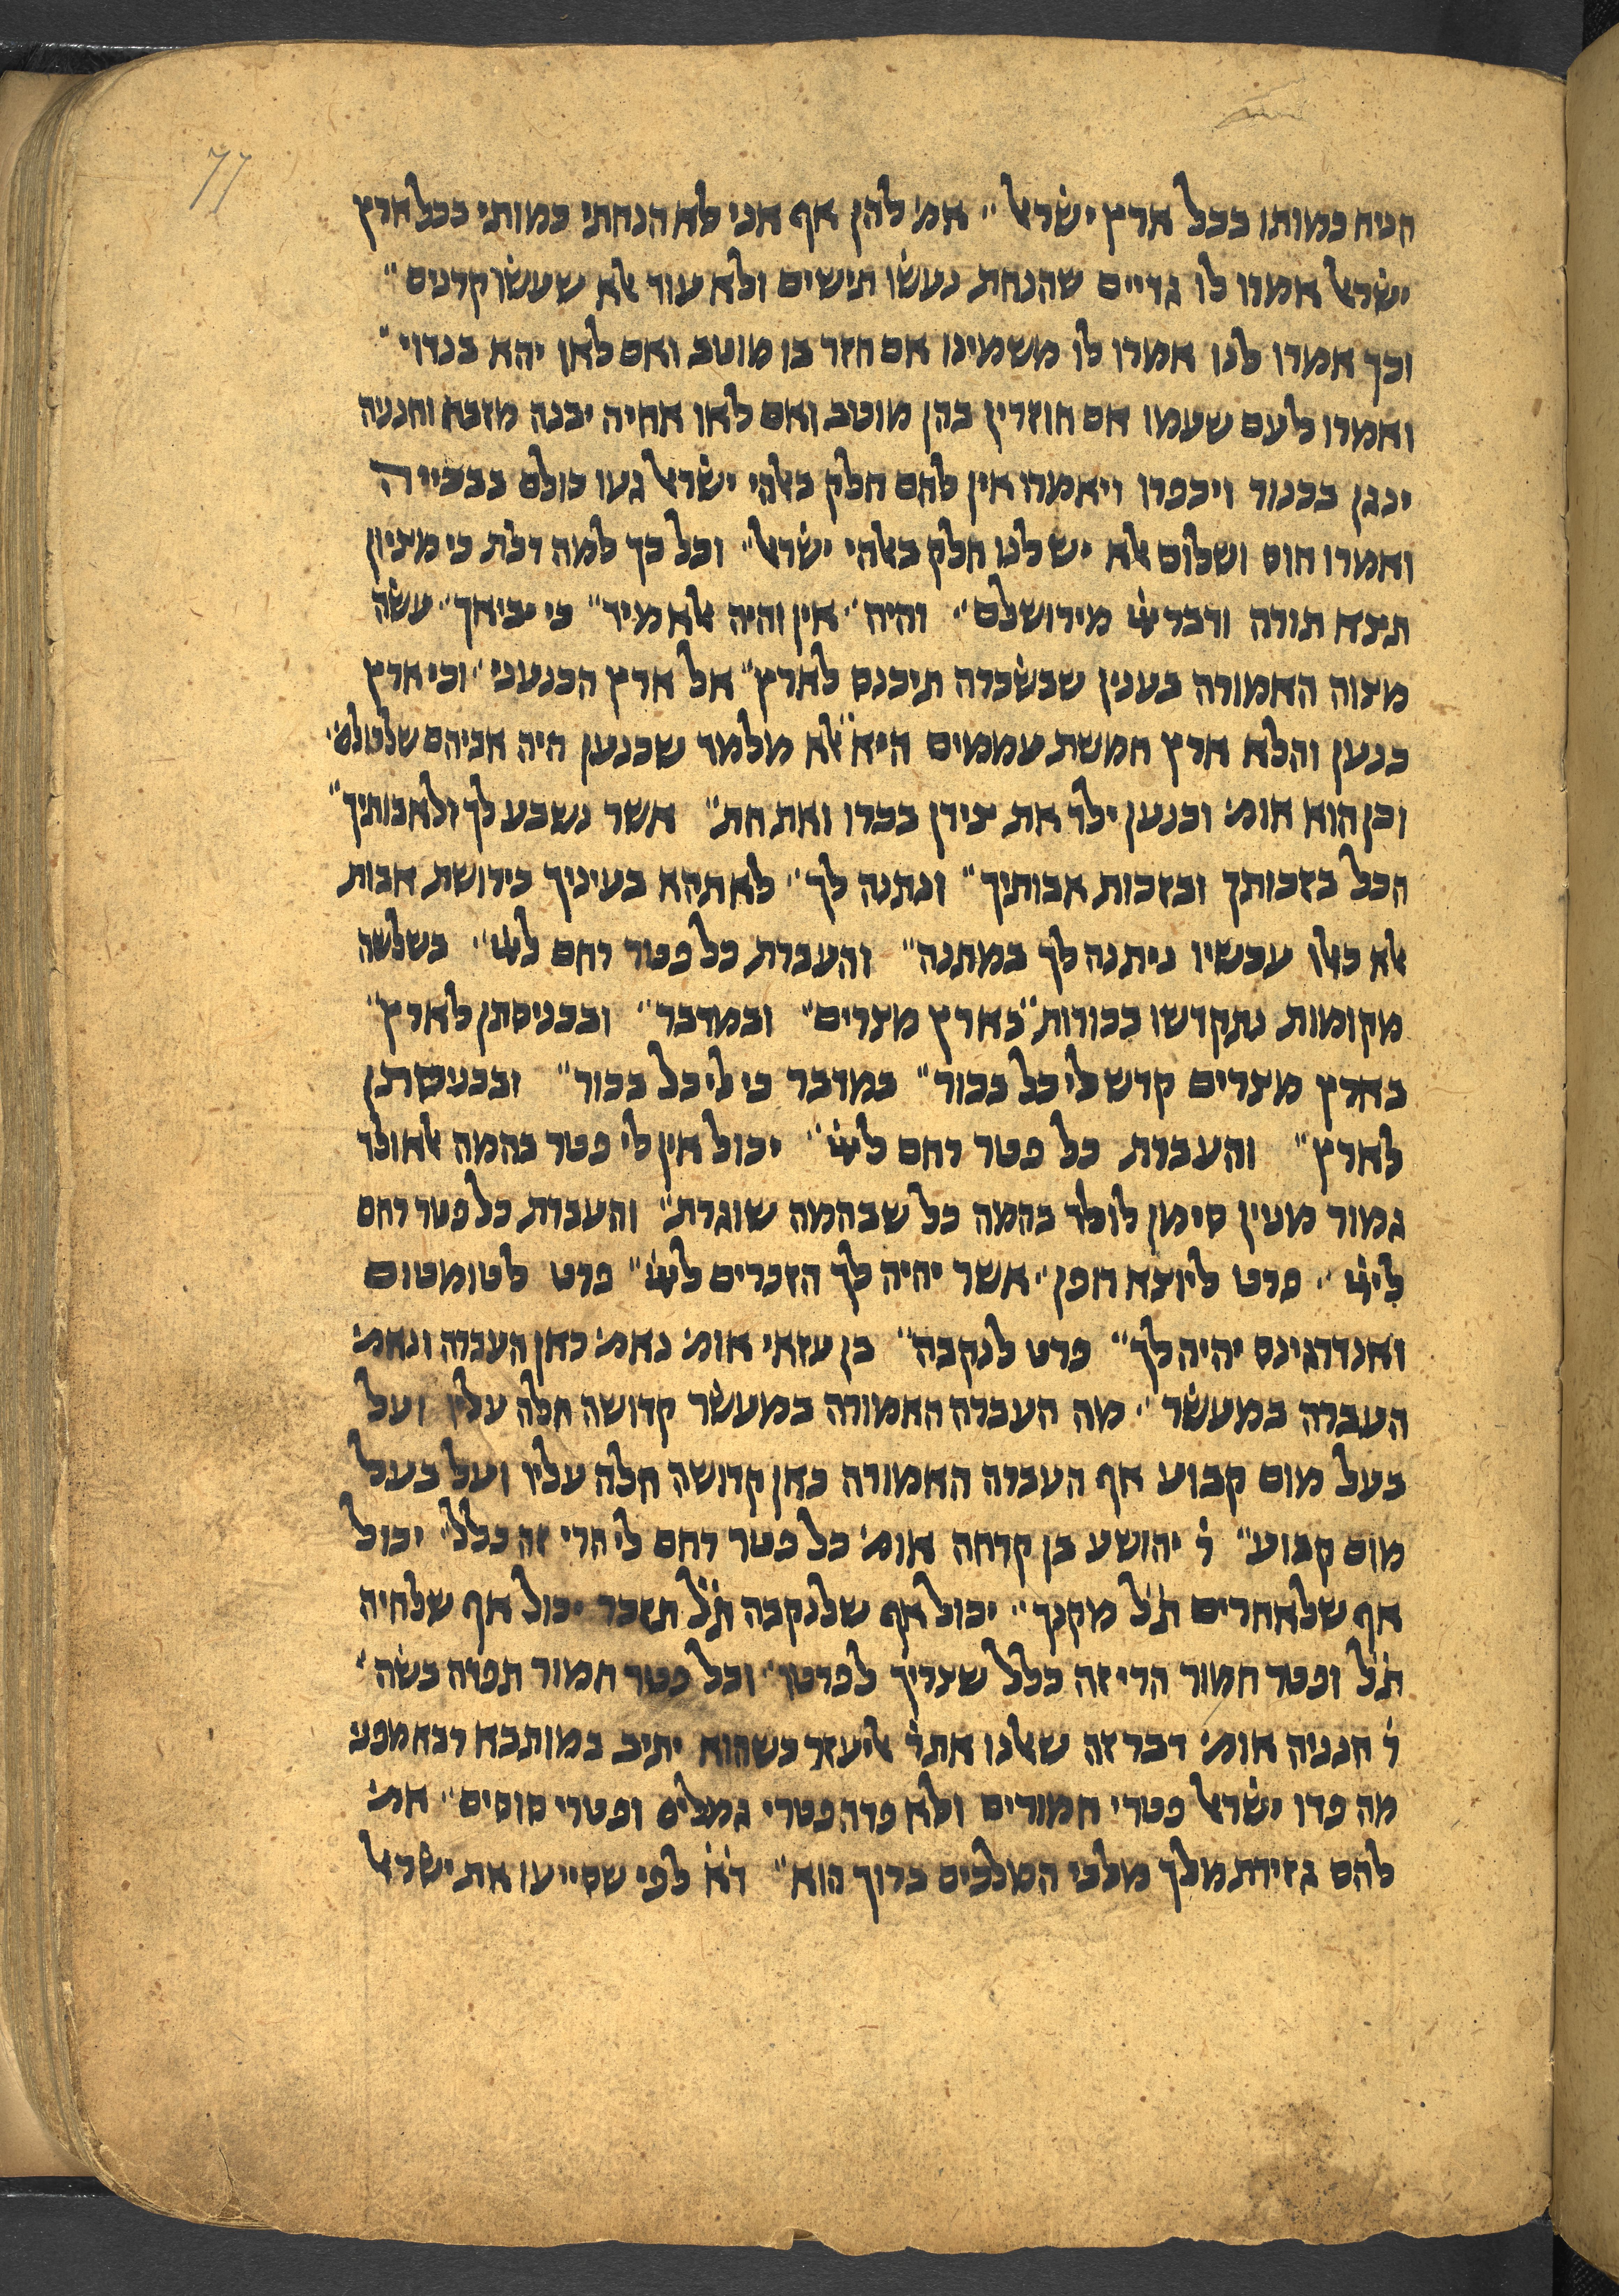 77
הניח כמותו בכל ארץ ישראל״ אמ׳ להן אף אני לא הנחתי כמותי בכל ארץ
ישראל אמרו לו גדיים שהנחת נעשו תישים ולא עוד אלא שעשו קרנים״
וכך אמרו לנו אמרו לו משמינו אם חזר בו מוטב ואם לאו יהא בנדוי״
ואמרו לעם שעמו אם חוזרין בהן מוטב ואם לאו אחיה יבנה מזבח וחנניה
ינגן בכנור ויכפרו ויאמרו אין להם חלק באלהי ישראל געו כולם בבכייה
ואמרו חוס ושלום אלא יש לנו חלק באלהי ישראל״ וכל כך למה דכת כי מציון
תצא תורה ודבר יי׳ מירושלם״ והיה״ אין והיה אלא מיד״ כי יביאך״ עשה
מצוה האמורה בענין שבשכרה תיכנס לארץ״ אל ארץ הכנעני״ וכי ארץ
כנען והלא ארץ חמשת עממים היא״ אלא מלמד שכנען היה אביהם שלכולם״
וכן הוא אומ׳ וכנען ילד את צידן בכרו ואת חת״ אשר נשבע לך ולאבותיך״
הכל בזכותך ובזכות אבותיך״ ונתנה לך״ לא תהא בעיניך כירושת אבות
אלא כאלו עכשיו ניתנה לך במתנה״ והעברת כל פטר רחם ליי׳״ בשלשה
מקומות נתקדשו בכורות״ בארץ מצרים״ ובמדבר״ ובכניסתן לארץ״
בארץ מצרים קדש לי כל בכור״ במדבר כי לי כל בכור״ ובכניסתן
לארץ״ והעברת כל פטר רחם ליי׳״ יכול אין לי פטר בהמה אלא ולד
גמור מנין סימן לולד בהמה כל שבהמה שוגרת״ והעברת כל פטר רחם
ליי׳״ פרט ליוצא דופן״ אשר יהיה לך הזכרים ליי׳״ פרט לטומטום
ואנדרגינס יהיה לך״ פרט לנקבה״ בן עזאי אומ׳ נאמ׳ כאן העברה ונאמ׳
העברה במעשר״ מה העברה האמורה במעשר קדושה חלה עליו ועל
בעל מום קבוע אף העברה האמורה כאן קדושה חלה עליו ועל בעל
מום קבוע״ ר׳ יהושע בן קרחה אומ׳ כל פטר רחם לי הרי זה כלל״ יכול
אף שלאחרים ת״ל מקנך״ יכול אף שלנקבה ת״ל תזכר יכול אף שלחיה
ת״ל ופטר חמור הרי זה כלל שצריך לפרטו״ וכל פטר חמור תפדה בשה״
ר׳ חנניה אומ׳ דבר זה שאלנו את ר׳ אליעזר כשהוא יתיב במותבא רבא מפני
מה פדו ישראל פטרי חמורים ולא פדה פטרי גמלים ופטרי סוסים״ אמ׳
להם גזירת מלך מלכי המלכים ברוך הוא״ ד״א לפי שסייעו את ישראל